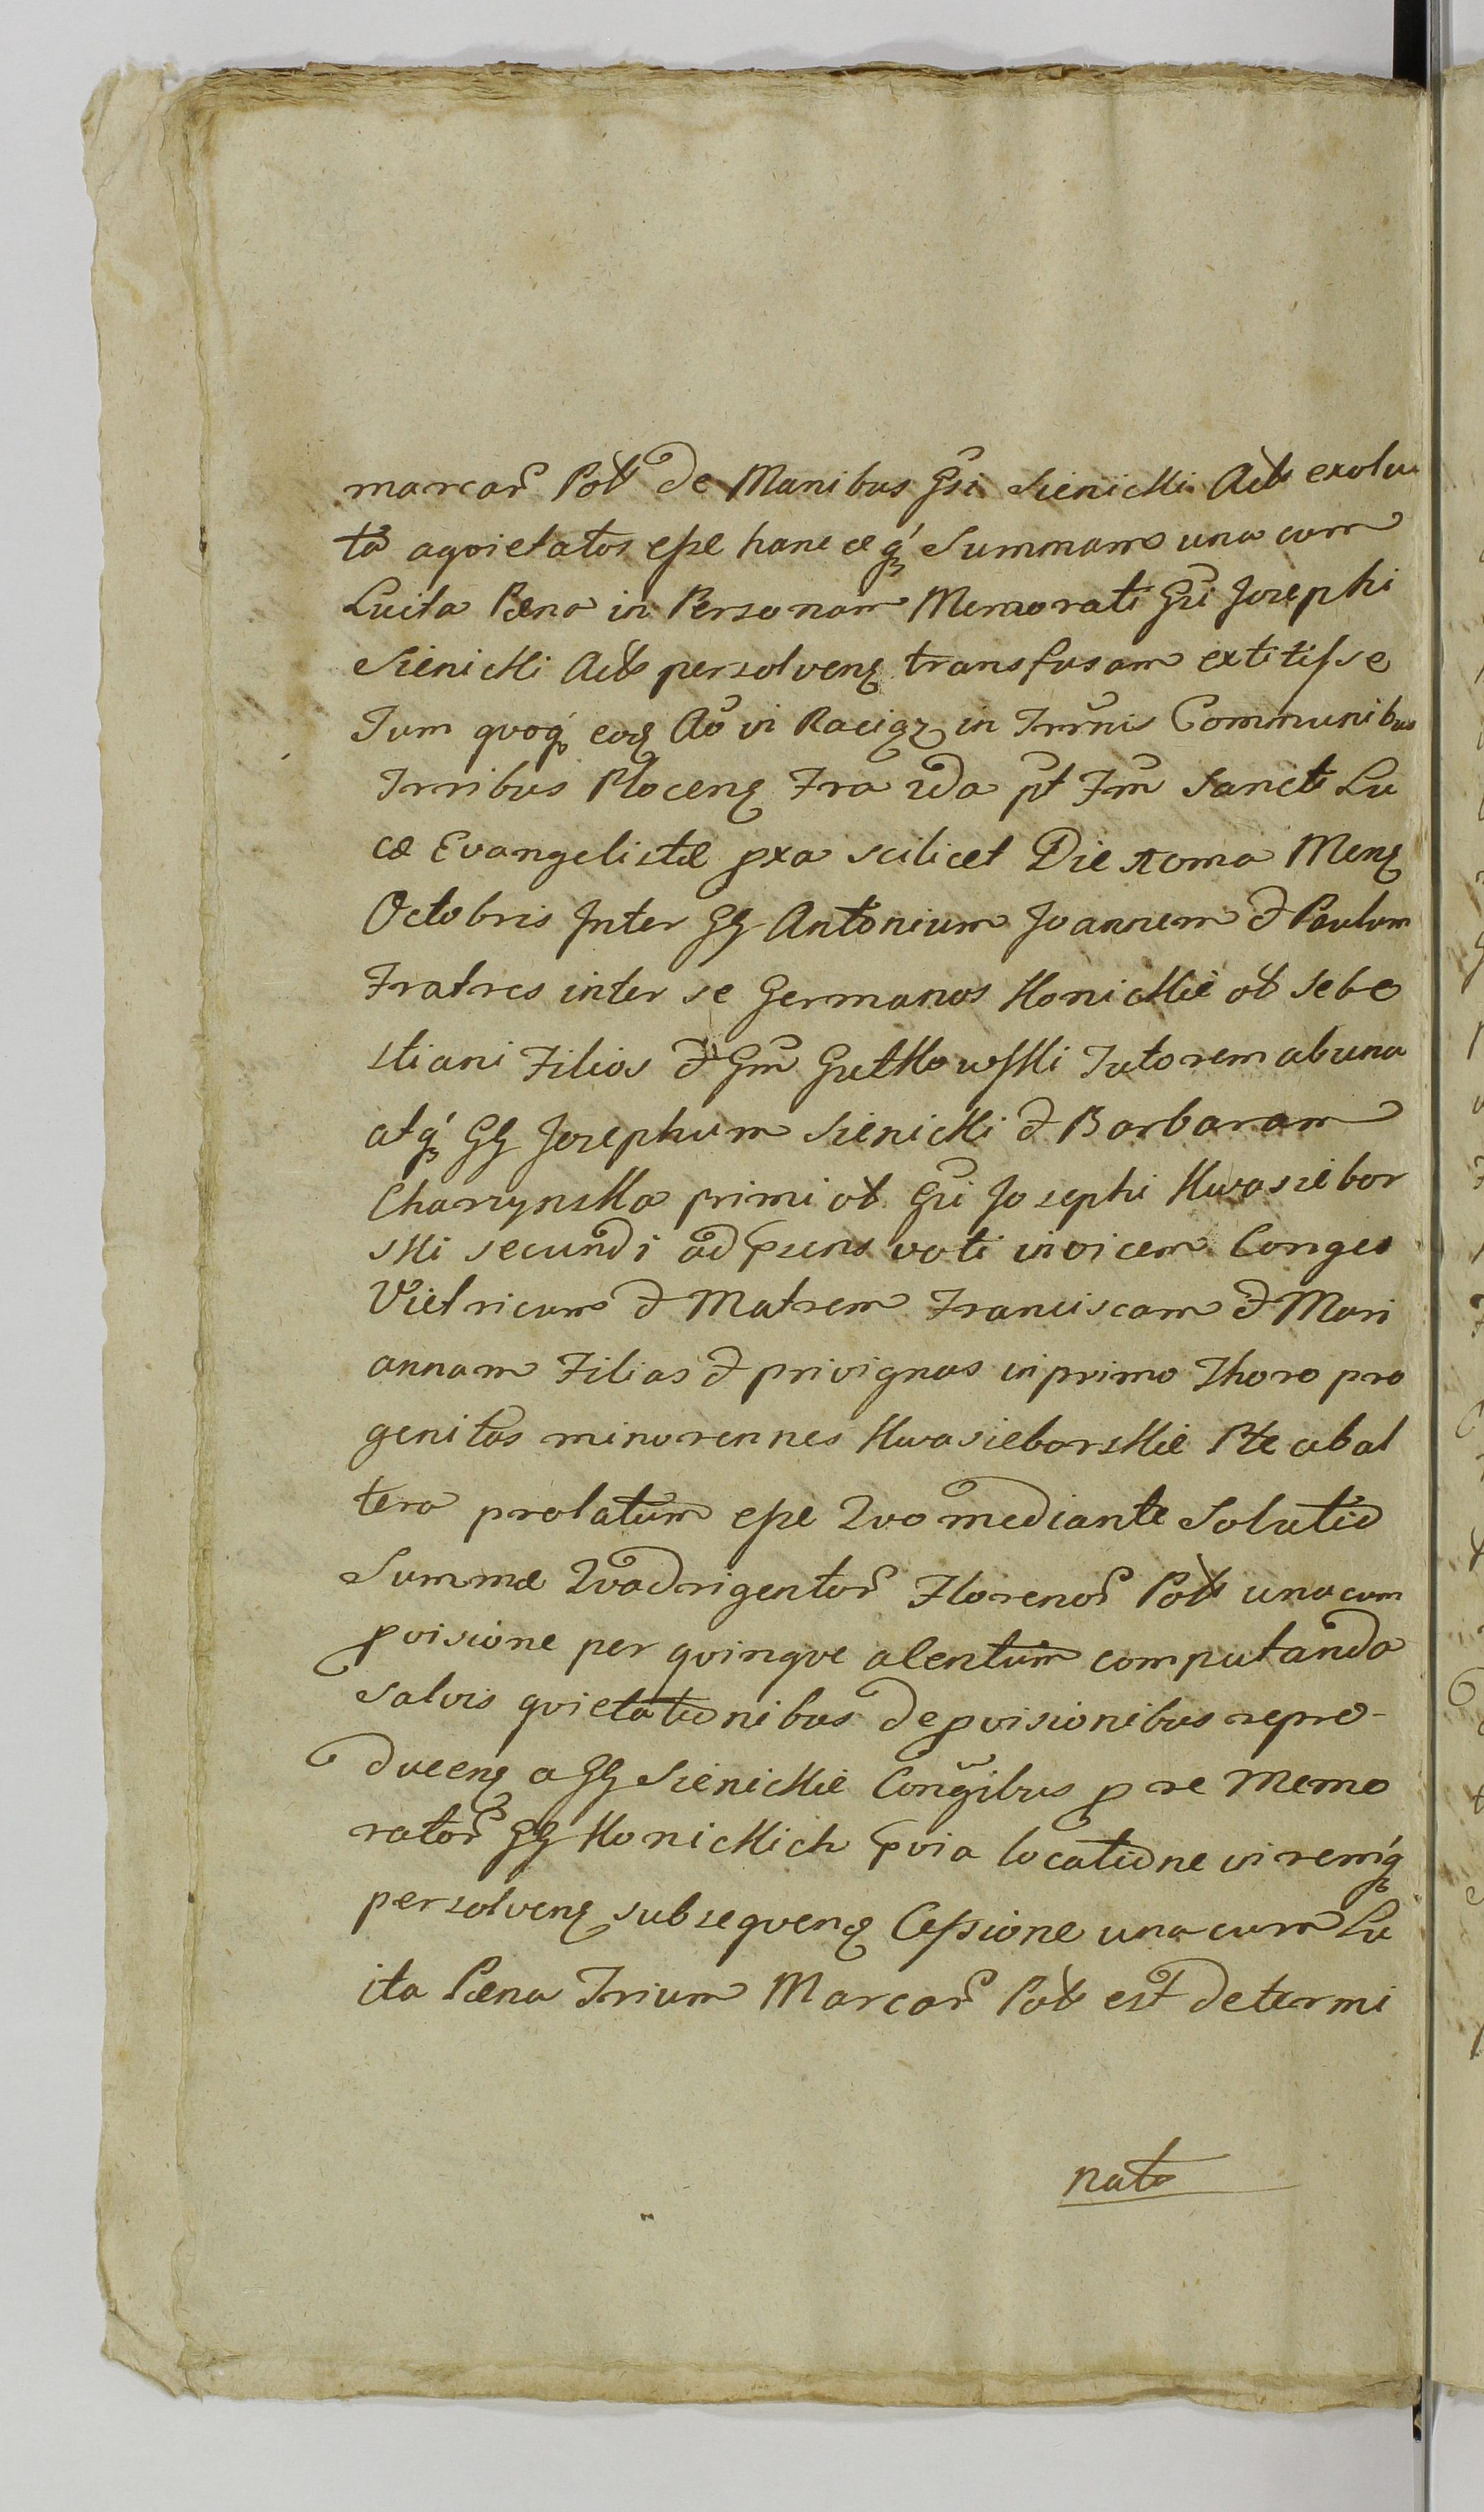 marcar Pol de Manibus Gsi Sienicki Acts exolu
ta aqvietatos esse hancceq Summam una cum
Luita Pæna in Personam Memorati Gsi Josephi
Sienicki Acts persolvenꝫ transfusam extitisse
Tum qvoqꝫ eoꝫ Ao in Raciąz in Trrnis Communibus
Trribus Plocenꝫ Fra 2da pt Fm Sancti Lu
cæ Evangelistæ pxa scilicet Die Meng
Octobris Inter GG Antonium Joannem & Paulum
Fratres inter se Germanos Konickie ol Seba
stiani Filios & Gm Gutkowski Tutorem ab una
atqꝫ GG Josephum Sienicki & Barbaram
Charzynska primi ol Gsi Josephi Kwasiebor
ski secundi ad psens voti invicem Conges
Vietricum & Matrem Franciscam & Mari
annam Filias & privignas in primo Thoro pro
genitas minorennes Kwasieborskie Pte ab al
tera prolatum esse Qvo mediante Solutio
Summæ Qvadrigentor Florenor Pol una cum
pvisione per qvinqve a Centum computando
Salvis qvietationibus de pvisionibus repro-
ducenꝫ a GG Sienickie Congibus p re Memo
rator GG Konickich pvia locatione in remqꝫ
persolvenꝫ subseqvenꝫ Cessione una cum Lu
ita Pæna Trium Marcar Pol est determi
nata